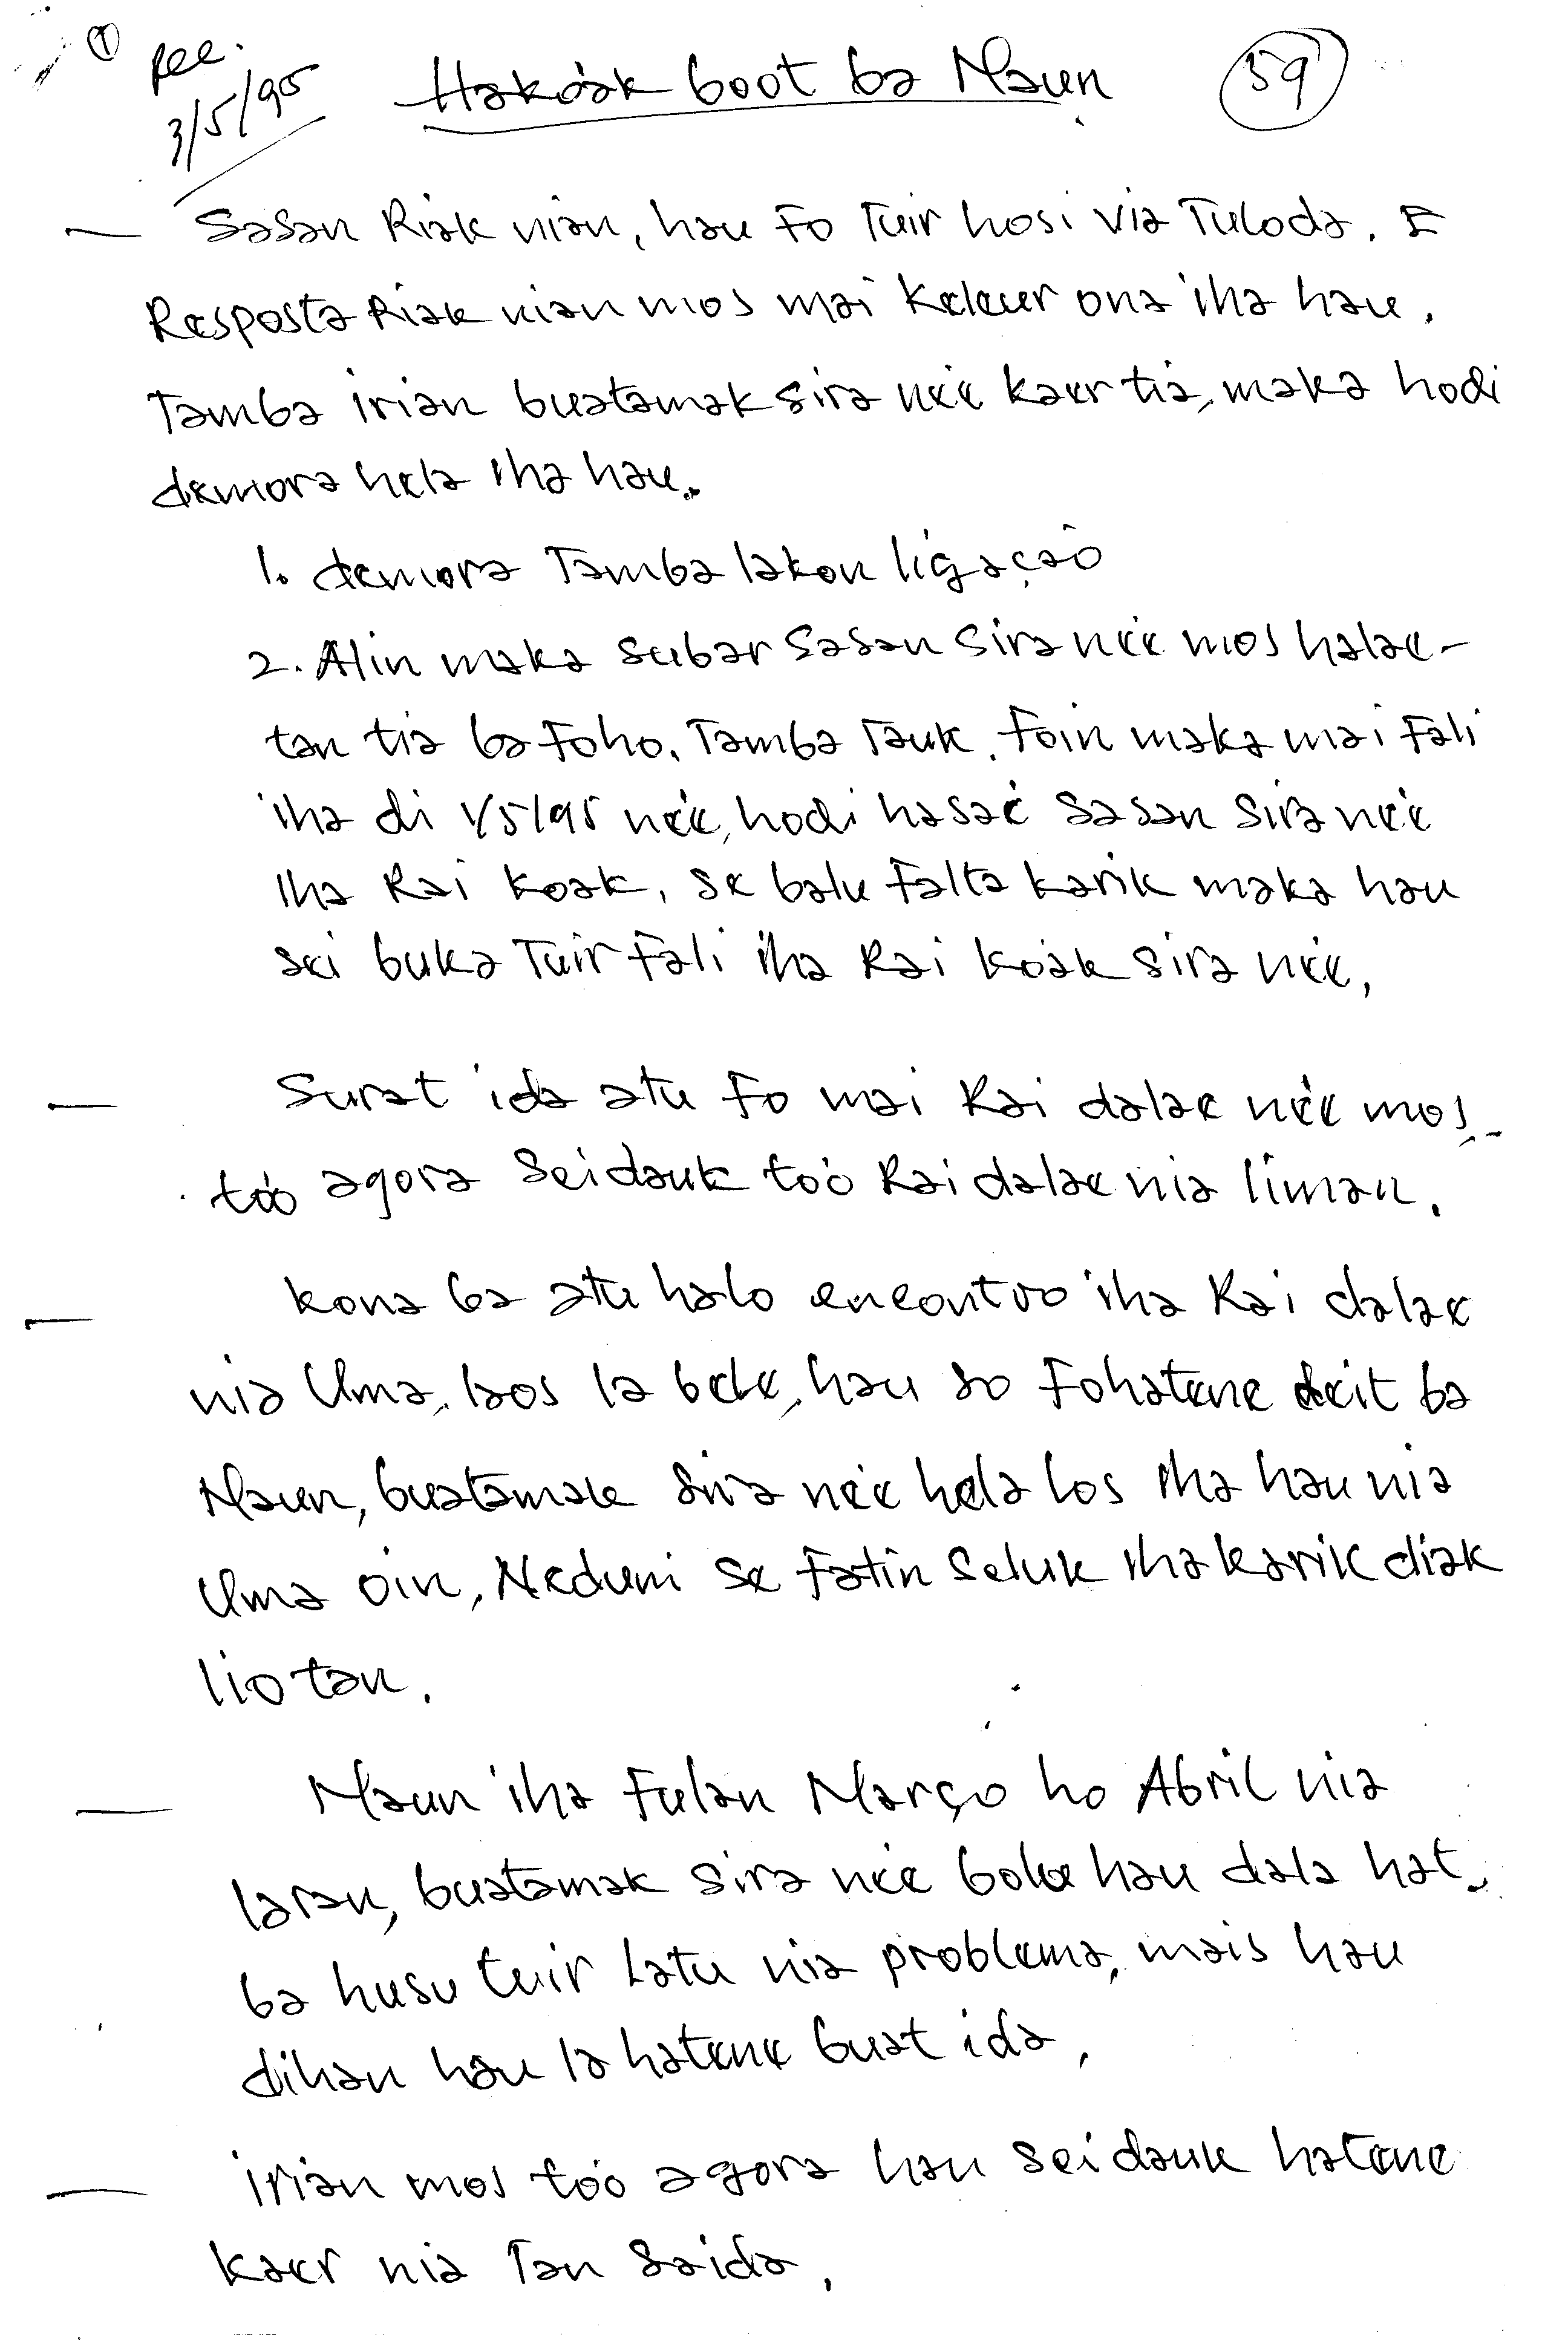 ① Rec.
3/5/95
Hakóak boot ba Maun
59
— Sasan Riak nian, hau Fo Tuir hosi via Tuloda. E
Resposta Riak nian mos mai Keleur ona iha hau.
Tamba irian buatamak sira neé kaer tia, maka hodi
demora hela iha hau.
1. demora Tamba lakon ligação
2. Alin maka subar sasan sira neé mos halae-
tan tia ba Foho, Tamba Tauk. Foin maka mai Fali
iha di 1/5/95 neé, hodi hasaé sasan sira neé
iha Rai Koak, se balu Falta karik maka hau
sei buka Tuir Fali iha Rai Koák sira neé,
— Surat ida atu Fo mai Rai dalae neé mos
toó agora seidauk toó Rai dalae nia liman.
— Kona ba atu halo encontro iha Rai dalae
nia Uma, laos la bele, hau so Fohatene deit ba
Maun, buatamak sira neé hela los iha hau nia
Uma oin, Neduni se Fatin seluk iha karik diak
lio tan.
— Maun iha Fulan Março ho Abril nia
laran, buatamak sira neé bolu hau dala hat,
ba husu tuir Latu nia problema, mais hau
dihan hau la hatene buat ida,
— irian mos toó agora hau seidauk hatene
kaer nia Tan saida,